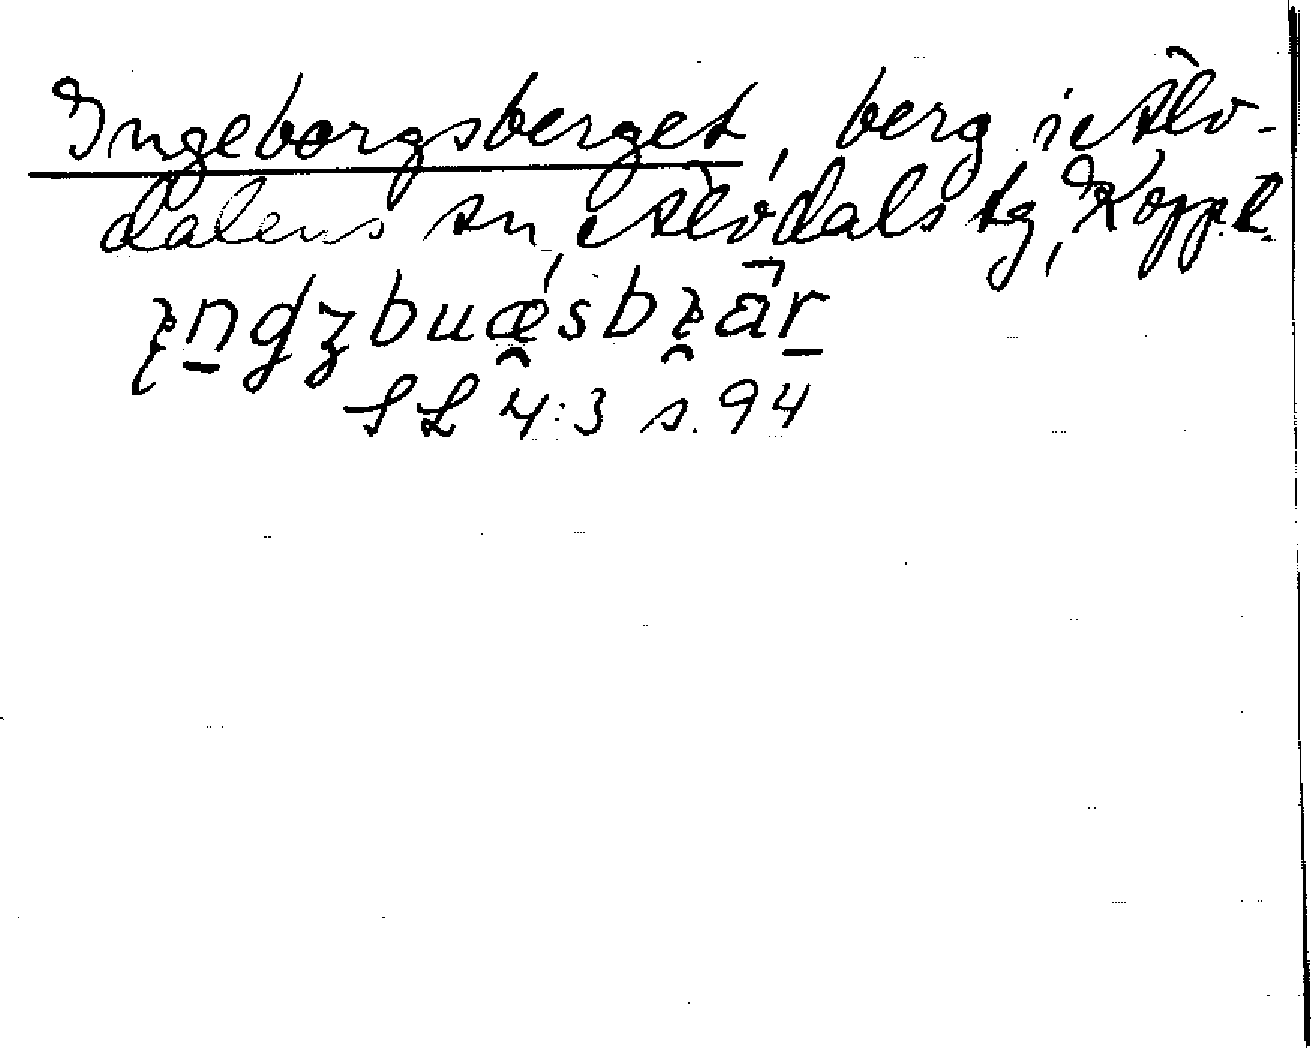 Ingeborgsberget, berg i Älv-
dalens sn, Älvdals tg, Kopp.l.
SL 4:3 s. 94